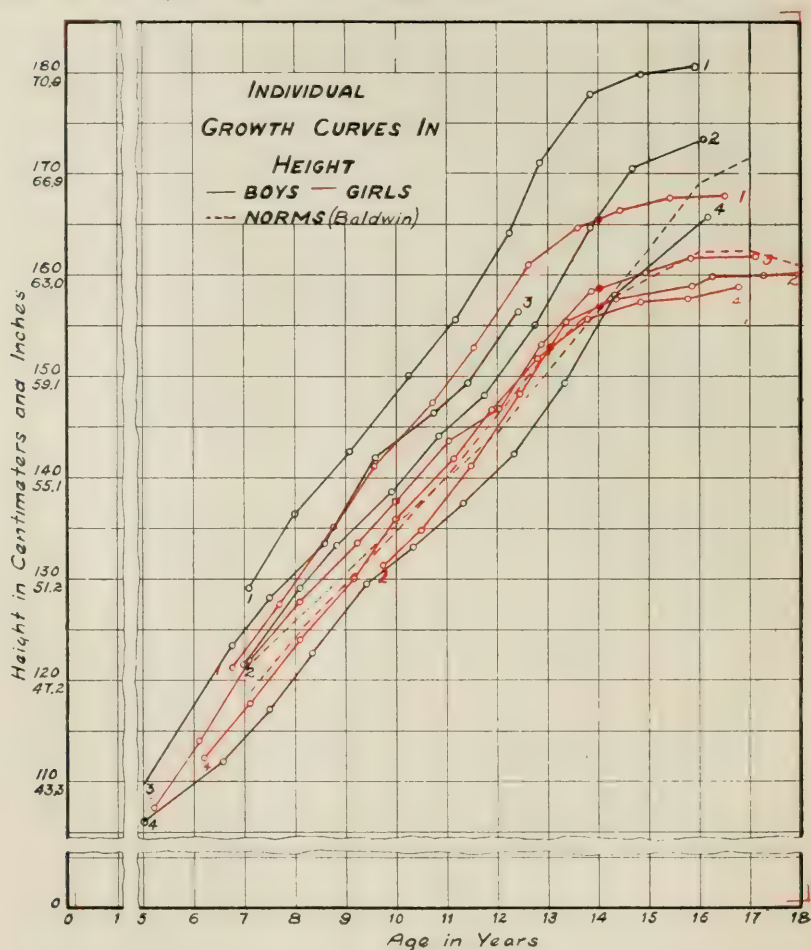 INDIVIDUAL
GROWTH CURVES IN
HEIGHT
— BOYS — GIRLS
--- NORMS (Baldwin)
Height in Centimeters and Inches
180
70,9
170
66,9
160
63,0
150
59,1
140
55,1
130
51,2
120
47,2
110
43,3
0
1
2
1
4
3
3
2
4
1
1
2
2
3
4
0 1 5 6 7 8 9 10 11 12 13 14 15 16 17 18
Age in Years